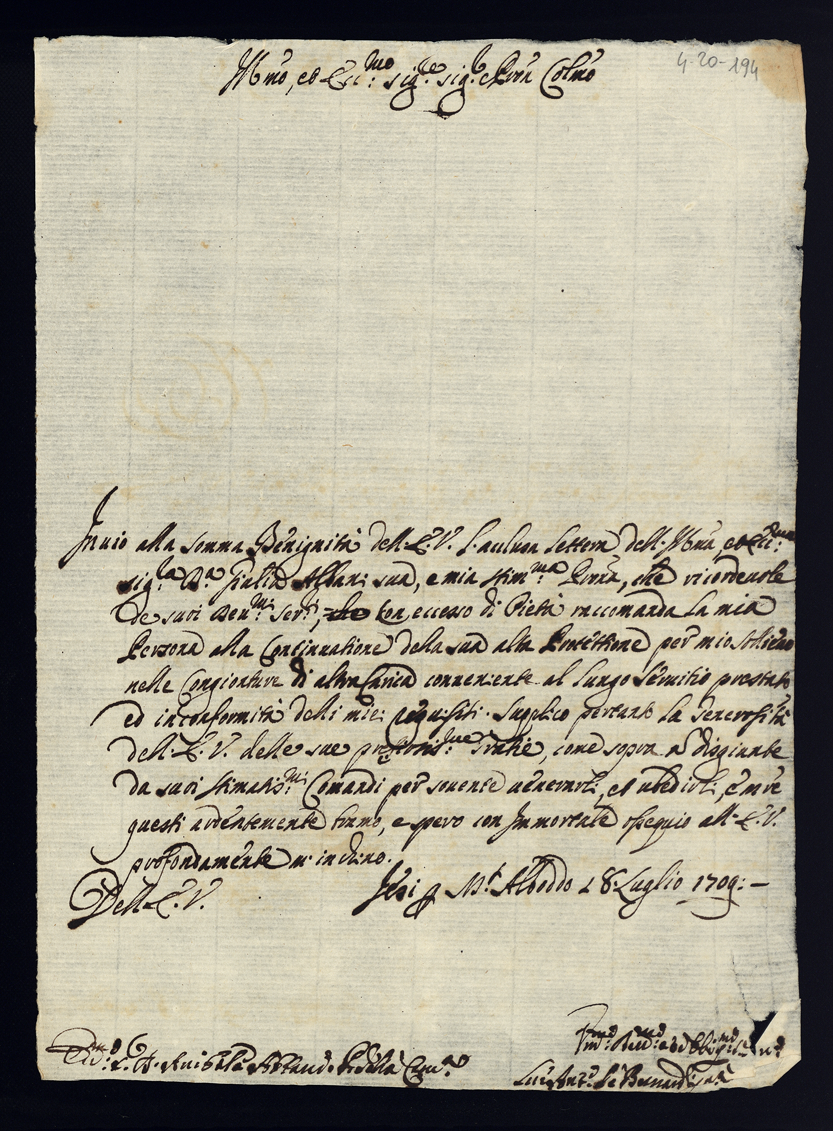 4-20-194
Ill.mo, ed Ecc:mo Sig.re Sig.re e Pron Col.mo
Invio alla somma Benignità dell'E.V. l'acclusa lettera dell'Ill.ma, ed Ecc:ma
Sig.ra D.a Giulia Albani sua, e mia stim.ma Prona, che ricordevole
de suoi Ser.i, con, eccesso di Pietà raccomanda la mia
Persona alla Continuatione della sua alta Protettione per mio sollievo
nelle Congionture di altra Carica conveniente al lungo servitio prestato
ed in conformità delli miei requisiti. Suplico pertanto la Generosità
dell'E.V. delle sue Gratie, come sopra
da suoi stimatis.mi Comandi per sovente venerarli, et ubedirli, e
questi ardentemente bramo, e spero con Immortale ossequio all'E.V.
profondamente m'inchino.
Dell'E.V. Jesi p M.t Alboddo 18 Luglio 1709: –
D. Anibale Albani della
Luigi Ant.o